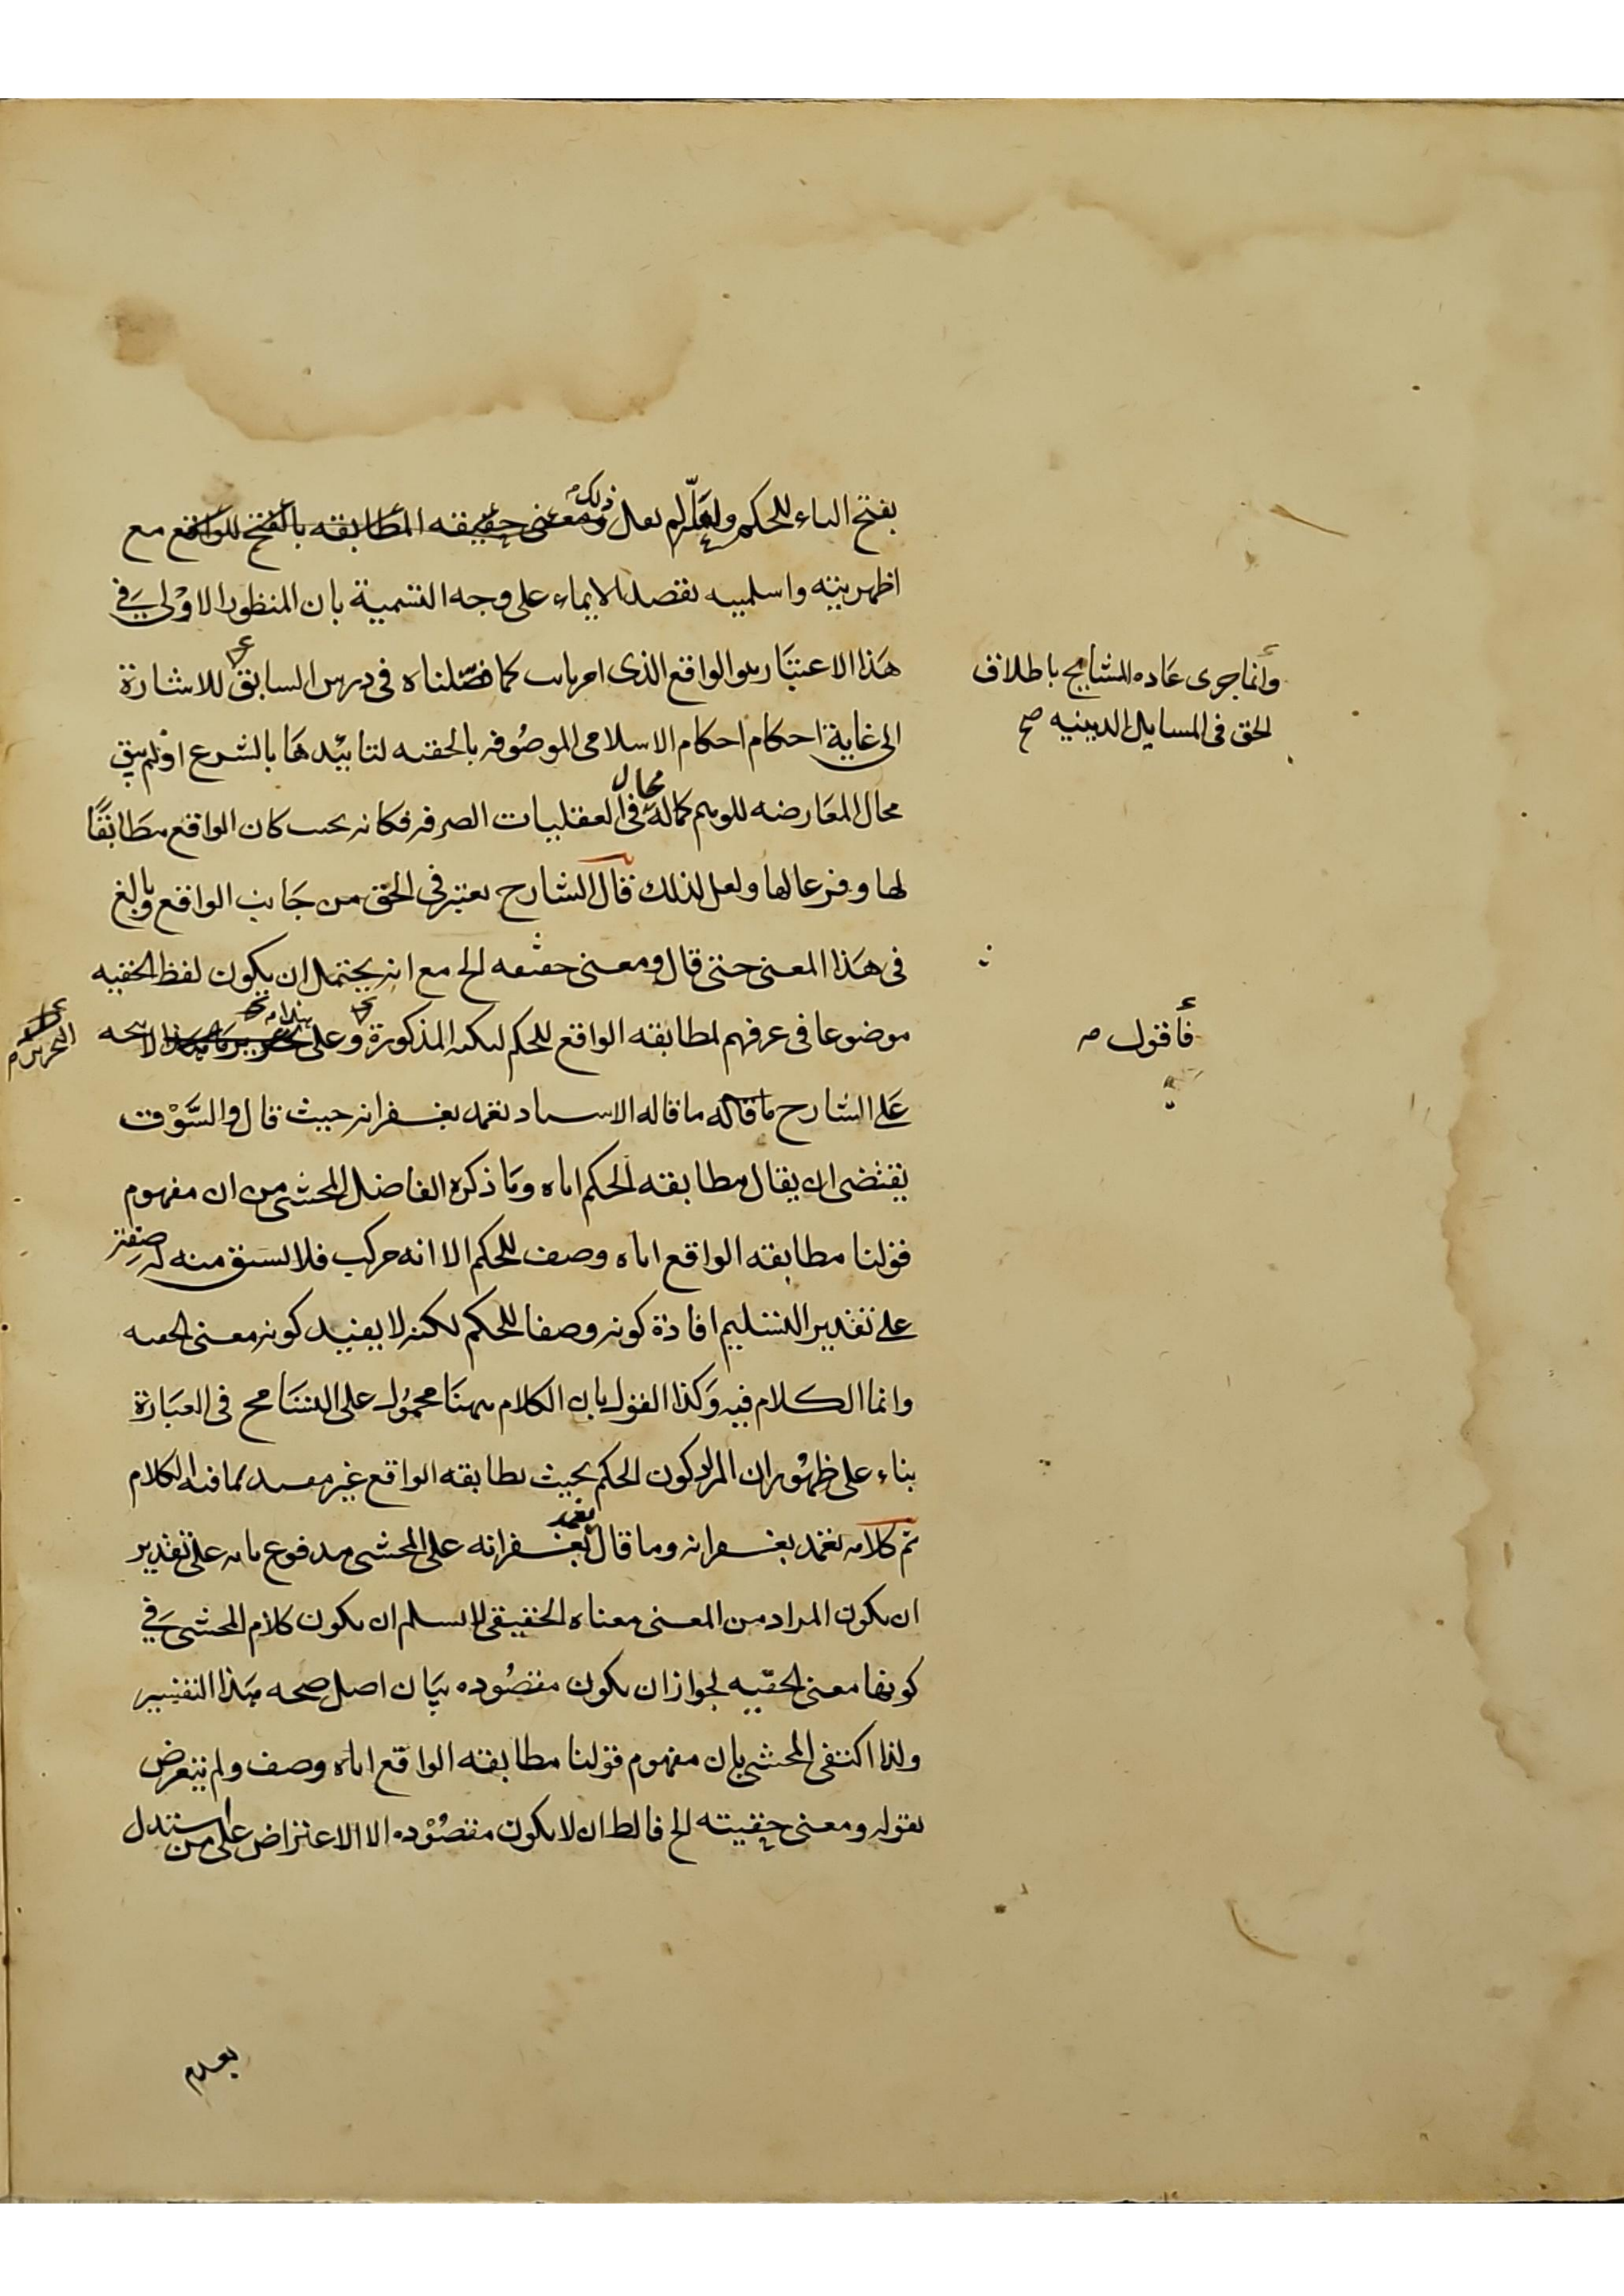 بفتح الباء للحكم ولعله لم يقل ذلك ومعنى حقيقه المطابقه بالفتح للواقع مع
اظهريته واسلميته نقصد الايماء على وجه التسمية بان المنظور الاولى في
هذا الاعتبار هو الواقع الذى امر بات كما فصلناه فى درس السابق للاشارة
وانما جرى عاده المشايخ باطلاق
الحق فى المسايل الدينيه صح
الى غاية احكام احكام الاسلامى الموصوفه بالحقيه لتابيدها بالشرع اذ لم يبق
محال المعارضه للوهم كماله محال فى العقليات الصرفه فكانه بحيث كان الواقع مطابقًا
لها وفرعا لها ولعل لذلك قال الشارح يعتبر فى الحق من جانب الواقع وبالغ
فى هذا المعنى حتى قال ومعنى حقيقه الخ مع انه يحتمل ان يكون لفظ الحقيه
موضوعا فى عرفهم لمطابقه الواقع للحكم لنكته المذكورة وعلى هذا لا يتجه
فأقول
على الشارح ما قاله ما قاله الاستاد تغمد بغفرانه حيث قال والسَّوْق
يقتضى ان يقال مطابقه الحكم اياه وما ذكره الفاضل المحشى من ان مفهوم
قولنا مطابقه الواقع اياه وصف للحكم الا انه مركب فلا يشتق منه له صفة
على تقدير التسليم افادة كونه وصفا للحكم لكنه لا يفيد كونه معنى الحقيه
وانما الكلام فيه وكذا القول بان الكلام ههنا محمول على التسامح فى العبارة
بناء على ظهور ان المراد كون الحكم بحيث يطابقه الواقع غير مفيد لما فيه الكلام
تم كلامه تغمد بغفرانه وما قال تغمد بغفرانه على المحشى مدفوع بانه على تقدير
ان يكون المراد من المعنى معناه الحقيقى لا يسلم ان يكون كلام المحشى في
كونها معنى الحقيه لجواز ان يكون مقصوده بيان اصل صحه هذا التفسير
ولذا اكتفى المحشى بان مفهوم قولنا مطابقه الواقع اياه وصف ولم يتعرض
بقوله ومعنى حقيته الخ فالظ ان لا يكون مقصوده الا الاعتراض على من استدل
بعدم